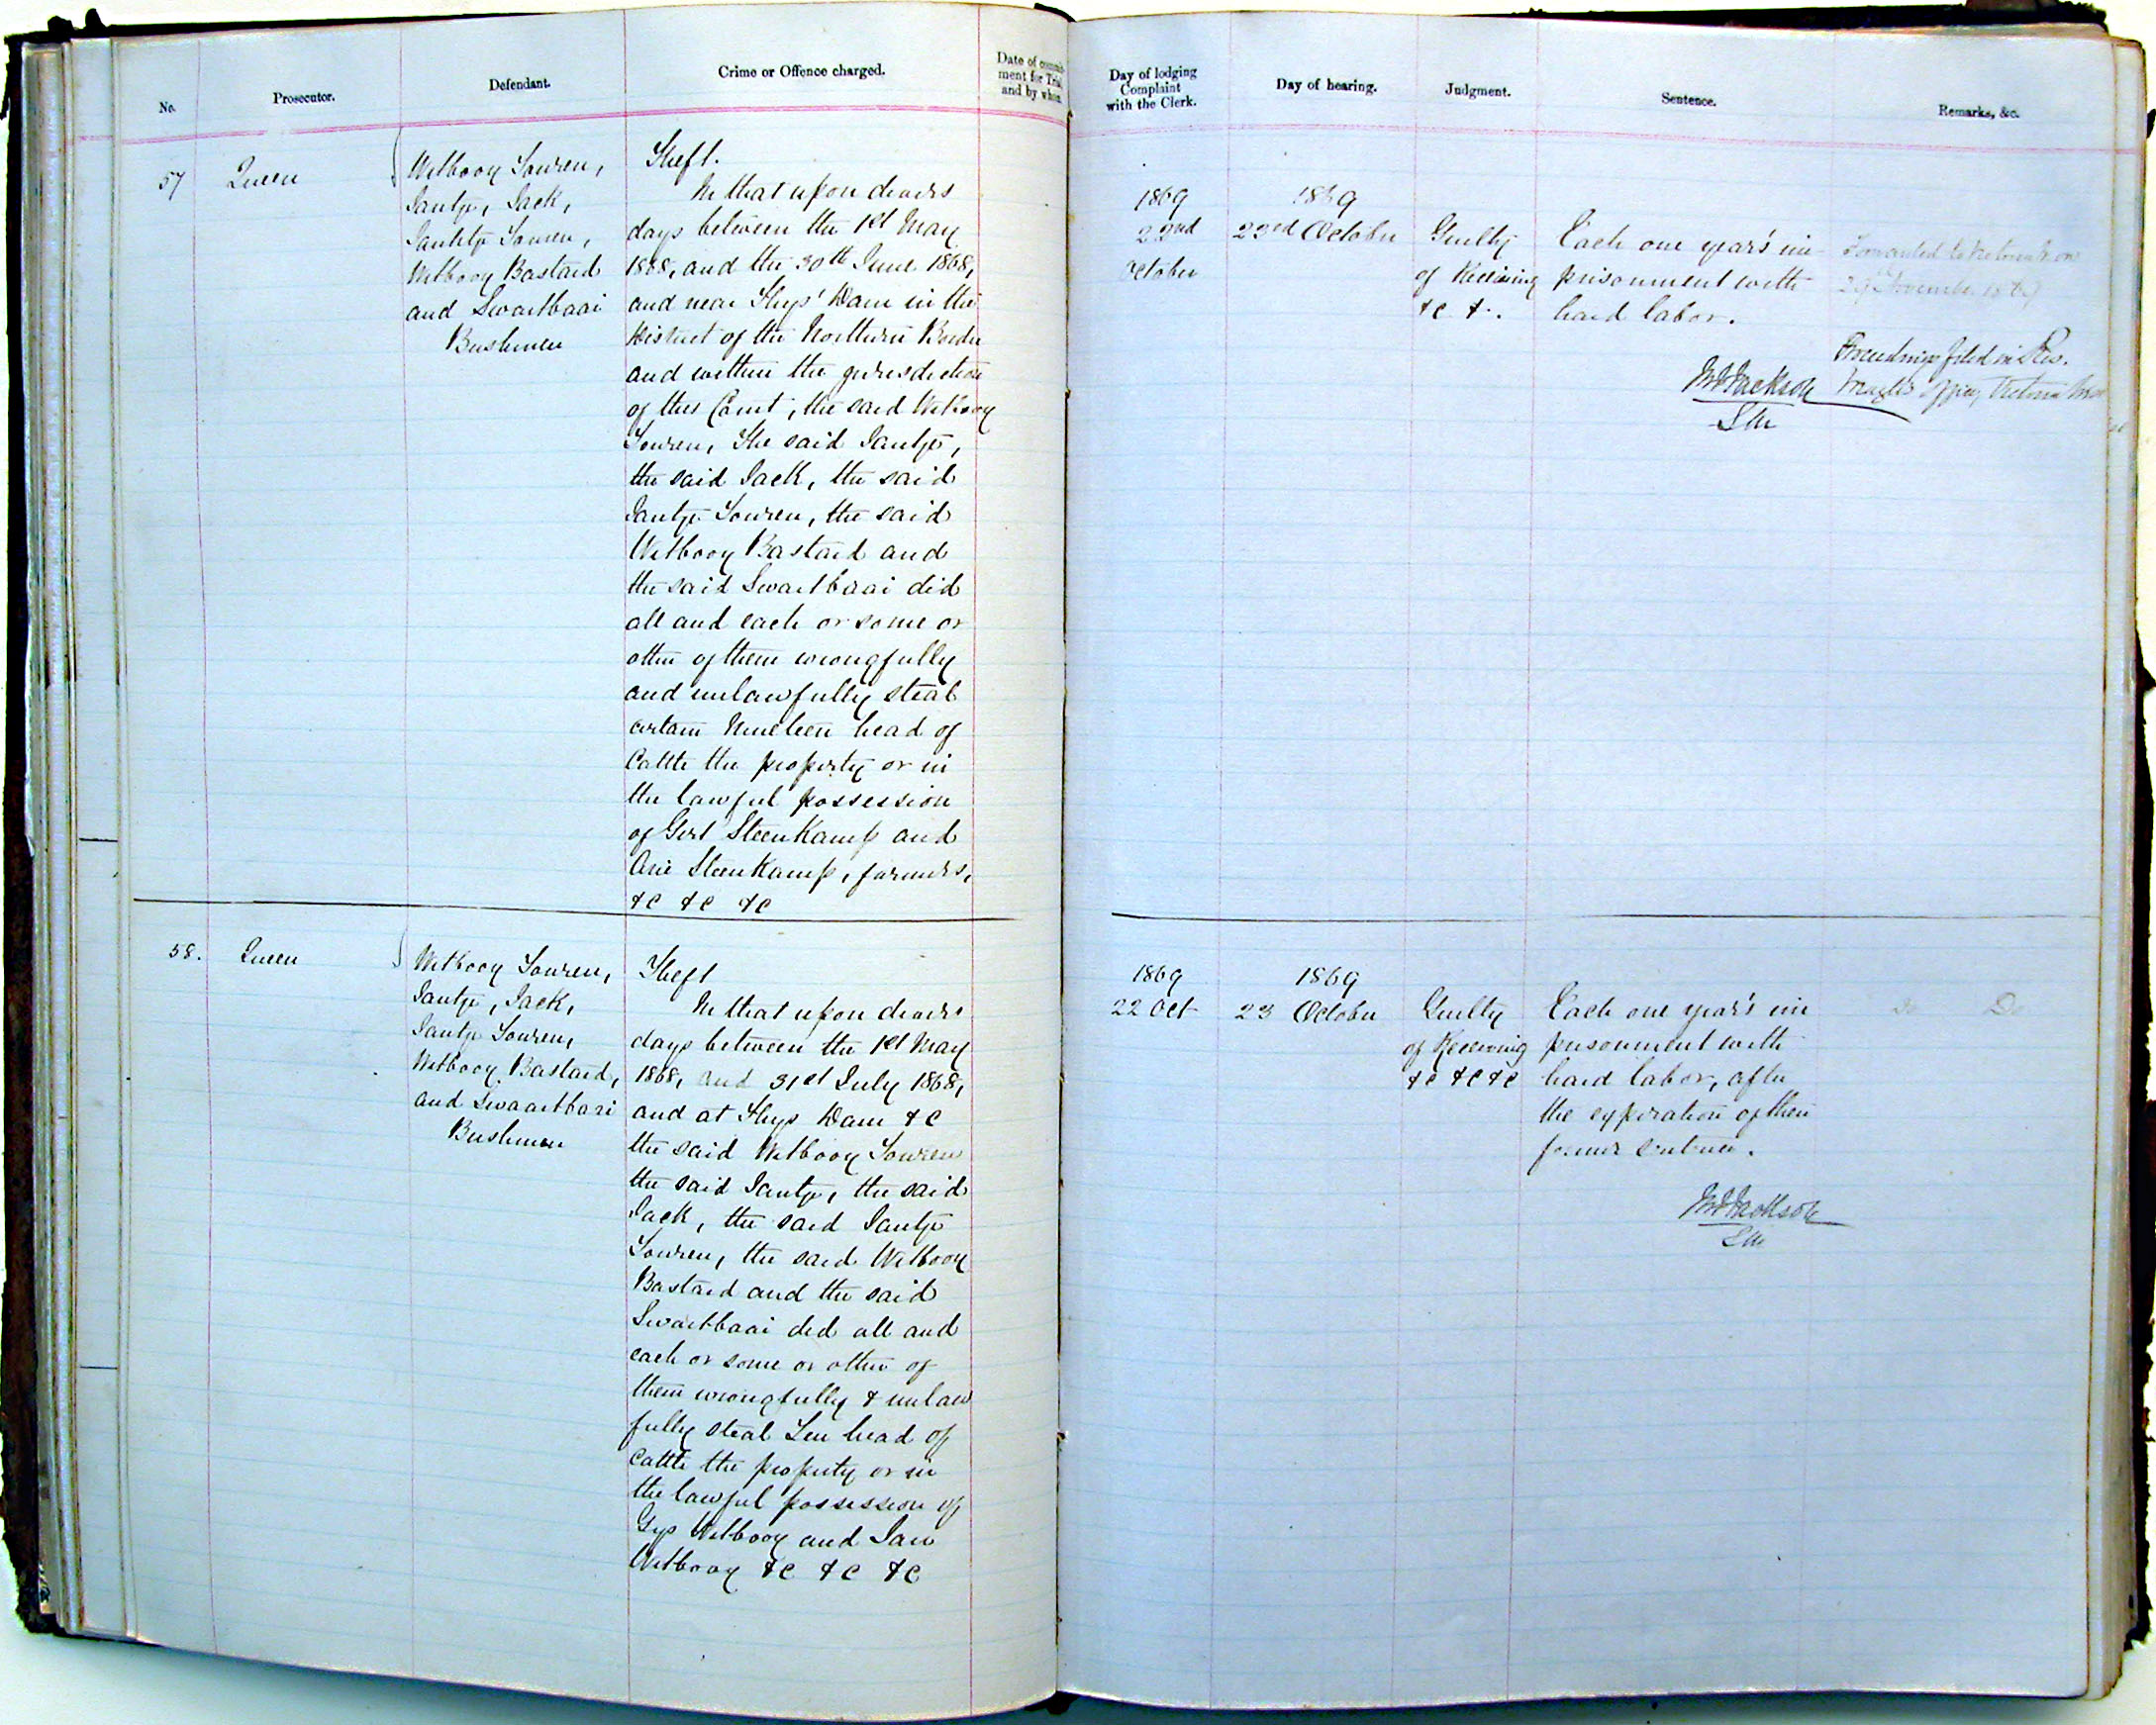 No.
Prosecutor.
Defendant.
Crime or Offence charged.
Date of commit-
ment for Trial
and by whom
57
Queen
Witbooy Touren,
Jantje, Jack,
Jantje Touren,
Witbooy Bastard
and Swartbaai
Bushmen
Theft.
In that upon divers
days between the 1st May
1868, and the 30th June 1868,
and near Thys' Dam in the
District of the Northern Border
and within the jurisdiction
of this Court, the said Witbooy
Touren, The said Jantje,
the said Jack, the said
Jantje Touren, the said
Witbooy Bastard and
the said Swartbaai did
all and each or some or
other of them wrongfully
and unlawfully steal
certain Nineteen head of
Cattle the property or in
the lawful possession
of Gert Steenkamp and
Arie Steenkamp, farmers,
&c &c &c
58.
Queen
Witbooy Touren,
Jantje, Jack,
Jantje Touren,
Witbooy Bastard,
and Swaartbaai
Bushmen
Theft
In that upon divers
days between the 1st May
1868, and 31st July 1868,
and at Thys Dam &c
the said Witbooy Touren
the said Jantje, the said
Jack, the said Jantje
Touren, the said Witbooy
Bastard and the said
Swartbaai did all and
each or some or other of
them wrongfully & unlaw
fully steal Ten head of
Cattle the property or in
the lawful possession of
Gys Witbooy and Jan
Witbooy &c &c &c
Day of lodging
Complaint
with the Clerk.
Day of hearing.
Judgment.
Sentence.
Remarks, &c.
1869
22nd
October
1869
23rd October
Guilty
of Receiving
&c &.
Each one year's im
prisonment with
hard labor.
MJJackson
SM
Forwarded to Victoria W on
29 November 1869
Proceedings filed in Res.
Magte's Office, Victoria West
1869
22 Oct
1869
23 October
Guilty
of Receiving
&c &c &c
Each one year's im
prisonment with
hard labor, after
the expiration of their
former sentence.
MJJackson
SM
Do Do